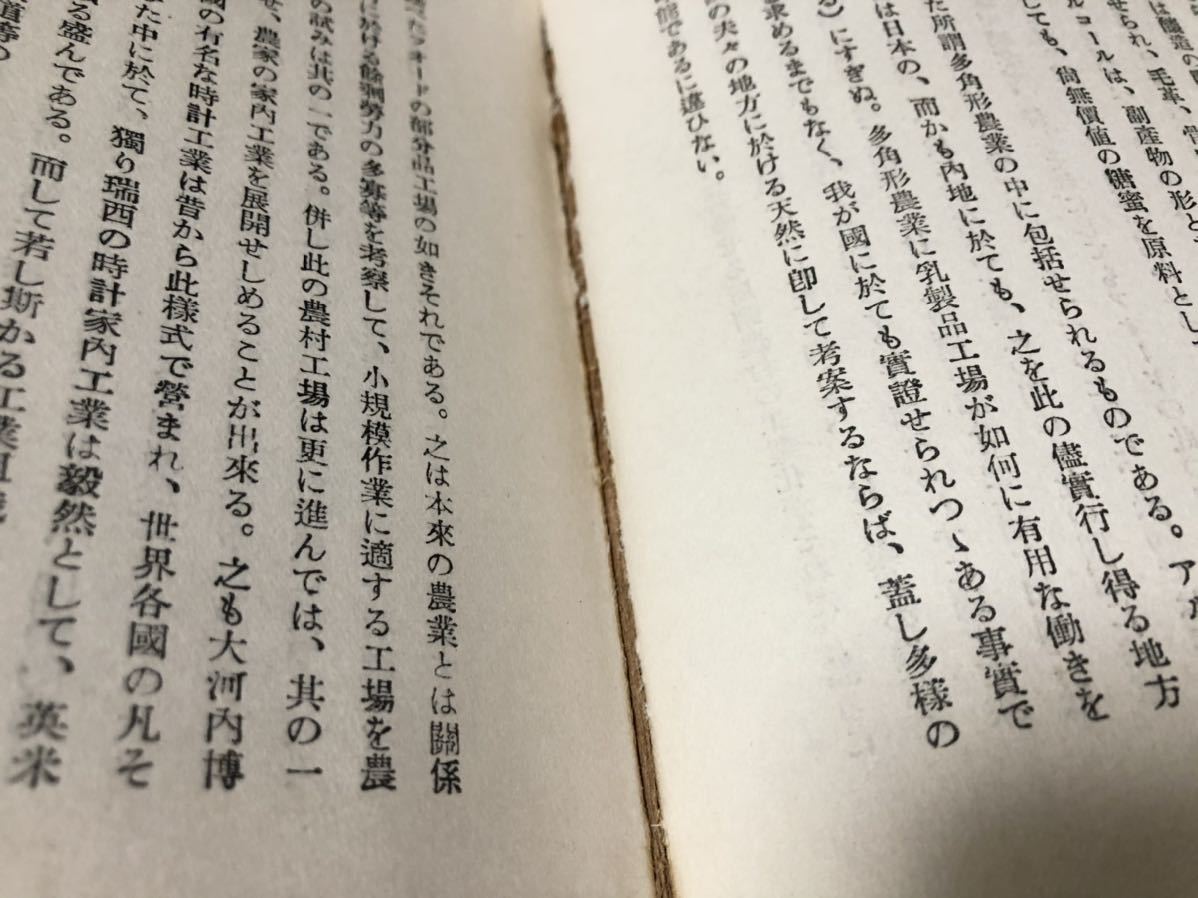 は釀造の
せられ、毛革、骨
ルコールは、副産物の形と
しても、尙無價値の糖蜜を原料とし
た所謂多角形農業の中に包括せられるものである。ア
は日本の、而かも内地に於ても、之を此の儘實行し得る地方
る)にすぎぬ。多角形農業に乳製品工場が如何に有用な働きを
求めるまでもなく、我が國に於ても實證せられつゝある事實で
の夫々の地方に於ける天然に卽して考案するならば、蓋し多樣の
能であるに違ひない。
フォードの部分品工場の如きそれである。之は本來の農業とは關係
に於ける餘剩勞力の多寡等を考察して、小規模作業に適する工場を農
の試みは其の一である。併し此の農村工場は更に進んでは、其の一
せ、農家の家內工業を展開せしめることが出來る。之も大河內博
國の有名な時計工業は昔から此樣式で營まれ、世界各國の凡そ
た中に於て、獨り瑞西の時計家內工業は毅然として、英米
る盛んである。而して若し斯かる工業組織
道等の